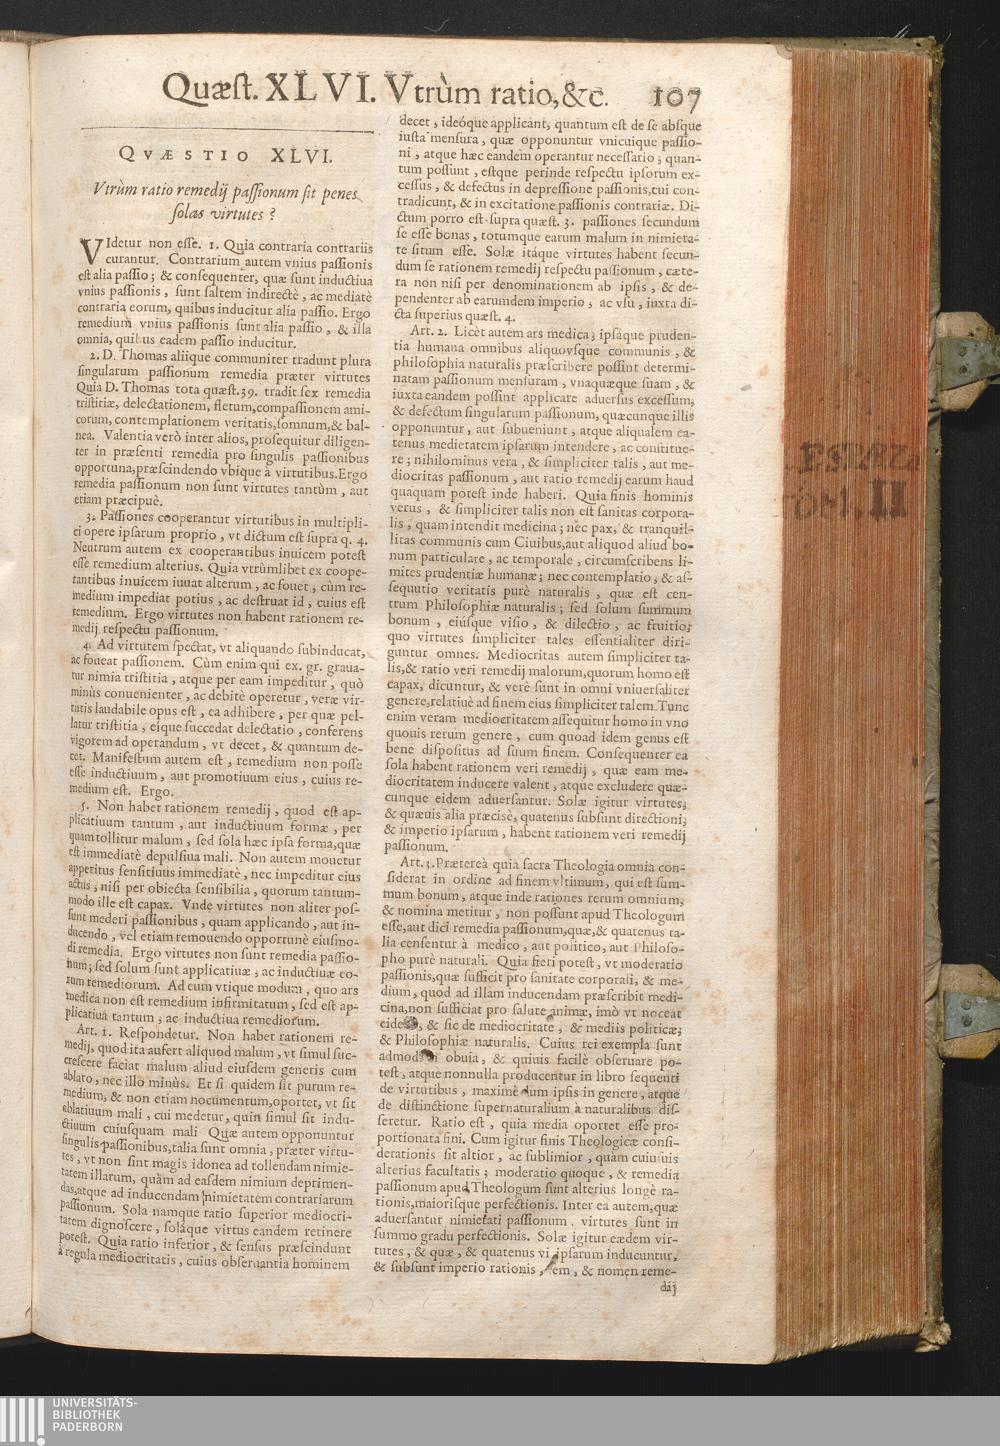 Quæst. XLVI. Vtrùm ratio, &c. 107
QVÆSTIO XLVI.
Vtrùm ratio remedij passionum sit penes
solas virtutes?
VIdetur non esse. 1. Quia contraria contrariis
curantur. Contrarium autem vnius passionis
est alia passio; & consequenter, quæ sunt inductiua
vnius passionis, sunt saltem indirectè, ac mediatè
contraria eorum, quibus inducitur alia passio. Ergo
remedium vnius passionis sunt alia passio, & illa
omnia, quibus eadem passio inducitur.
2. D. Thomas aliique communiter tradunt plura
singularum passionum remedia præter virtutes
Quia D. Thomas tota quæst. 39. tradit sex remedia
tristitiæ, delectationem, fletum, compassionem ami-
corum, contemplationem veritatis, somnum, & bal-
nea. Valentia verò inter alios, prosequitur diligen-
ter in præsenti remedia pro singulis passionibus
opportuna, præscindendo vbique à virtutibus. Ergo
remedia passionum non sunt virtutes tantùm, aut
etiam præcipuè.
3. Passiones cooperantur virtutibus in multipli-
ci opere ipsarum proprio, vt dictum est supra q. 4.
Neutrum autem ex cooperantibus inuicem potest
esse remedium alterius. Quia vtrùmlibet ex coope-
rantibus inuicem iuuat alterum, ac fouet, cùm re-
medium impediat potius, ac destruat id, cuius est
remedium. Ergo virtutes non habent rationem re-
medij respectu passionum.
4. Ad virtutem spectat, vt aliquando subinducat,
ac foueat passionem. Cùm enim qui ex. gr. graua-
tur nimia tristitia, atque per eam impeditur, quò
minùs conuenienter, ac debitè operetur, veræ vir-
tutis laudabile opus est, ea adhibere, per quæ pel-
latur tristitia, eique succedat delectatio, conferens
vigorem ad operandum, vt decet, & quantum de-
cet. Manifestum autem est, remedium non posse
esse inductiuum, aut promotiuum eius, cuius re-
medium est. Ergo.
5. Non habet rationem remedij, quod est ap-
plicatiuum tantum, aut inductiuum formæ, per
quam tollitur malum, sed sola hæc ipsa forma, quæ
est immediatè depulsiua mali. Non autem mouetur
appetitus sensitiuus immediatè, nec impeditur eius
actus, nisi per obiecta sensibilia, quorum tantum-
modo ille est capax. Vnde virtutes non aliter pos-
sunt mederi passionibus, quam applicando, aut in-
ducendo, vel etiam remouendo opportunè eiusmo-
di remedia. Ergo virtutes non sunt remedia passio-
num; sed solum sunt applicatiuæ; ac inductiuæ eo-
rum remediorum. Ad eum vtique modum, quo ars
medica non est remedium infirmitatum, sed est ap-
plicatiua tantum; ac inductiua remediorum.
Art. 1. Respondetur. Non habet rationem re-
medij, quod ita aufert aliquod malum, vt simul suc-
crescere faciat malum aliud eiusdem generis cum
ablato, nec illo minùs. Et si quidem sit purum re-
medium, & non etiam nocumentum, oportet, vt sit
ablatiuum mali, cui medetur, quin simul sit indu-
ctiuum cuiusquam mali Quæ autem opponuntur
singulis passionibus, talia sunt omnia, præter virtu-
tes, vt non sint magis idonea ad tollendam nimie-
tatem illarum, quàm ad easdem nimium deprimen-
das, atque ad inducendam nimietatem contrariarum
passionum. Sola namque ratio superior mediocri-
tatem dignoscere, soláque virtus eandem retinere
potest. Quia ratio inferior, & sensus præscindunt
à regula mediocritatis, cuius obseruantia hominem
decet, ideóque applicant, quantum est de se absque
iusta mensura, quæ opponuntur vnicuique passio-
ni, atque hæc eandem operantur necessario; quan-
tum possunt, estque perinde respectu ipsorum ex-
cessus, & defectus in depressione passionis, cui con-
tradicunt, & in excitatione passionis contrariæ. Di-
ctum porro est supra quæst. 3. passiones secundum
se esse bonas, totumque earum malum in nimieta-
te situm esse. Solæ itáque virtutes habent secun-
dum se rationem remedij respectu passionum, cæte-
ra non nisi per denominationem ab ipsis, & de-
pendenter ab earumdem imperio; ac vsu, iuxta di-
cta superius quæst. 4.
Art. 2. Licèt autem ars medica; ipsáque pruden-
tia humana omnibus aliquovsque communis, &
philosophia naturalis præscribere possint determi-
natam passionum mensuram, vnaquæque suam, &
iuxta eandem possint applicare aduersus excessum,
& defectum singularum passionum, quæcunque illis
opponuntur, aut subueniunt, atque aliqualem ea-
tenus medietatem ipsarum intendere, ac constitue-
re; nihilominus vera, & simpliciter talis, aut me-
diocritas passionum, aut ratio remedij earum haud
quaquam potest inde haberi. Quia finis hominis
verus, & simpliciter talis non est sanitas corpora-
lis, quam intendit medicina; nec pax, & tranquil-
litas communis cum Ciuibus, aut aliquod aliud bo-
num particulare, ac temporale, circumscribens li-
mites prudentiæ humanæ; nec contemplatio, & as-
sequutio veritatis purè naturalis, quæ est cen-
trum Philosophiæ naturalis; sed solum summum
bonum, eiúsque visio, & dilectio, ac fruitio;
quo virtutes simpliciter tales essentialiter diri-
guntur omnes. Mediocritas autem simpliciter ta-
lis, & ratio veri remedij malorum, quorum homo est
capax, dicuntur, & verè sunt in omni vniuersaliter
genere, relatiuè ad finem eius simpliciter talem. Tunc
enim veram mediocritatem assequitur homo in vno
quouis rerum genere, cum quoad idem genus est
bene dispositus ad suum finem. Consequenter ea
sola habent rationem veri remedij, quæ eam me-
diocritatem inducere valent, atque excludere quæ-
cunque eidem aduersantur. Solæ igitur virtutes;
& quæuis alia præcisè, quatenus subsunt directioni;
& imperio ipsarum, habent rationem veri remedij
passionum.
Art. 3. Prætereà quia sacra Theologia omnia con-
siderat in ordine ad finem vltimum, qui est sum-
mum bonum, atque inde rationes rerum omnium,
& nomina metitur, non possunt apud Theologum
esse, aut dici remedia passionum, quæ, & quatenus ta-
lia censentur à medico, aut politico, aut Philoso-
pho purè naturali. Quia fieri potest, vt moderatio
passionis, quæ sufficit pro sanitate corporali, & me-
dium, quod ad illam inducendam præscribit medi-
cina, non sufficiat pro salute animæ, imò vt noceat
eidem, & sic de mediocritate, & mediis politicæ;
& Philosophiæ naturalis. Cuius rei exempla sunt
admodum obuia, & quiuis facilè obseruare po-
test, atque nonnulla producentur in libro sequenti
de virtutibus, maximè dum ipsis in genere, atque
de distinctione supernaturalium à naturalibus dis-
seretur. Ratio est, quia media oportet esse pro-
portionata fini. Cum igitur finis Theologicæ consi-
derationis sit altior, ac sublimior, quàm cuiusuis
alterius facultatis; moderatio quoque, & remedia
passionum apud Theologum sunt alterius longè ra-
tionis, maiorisque perfectionis. Inter ea autem, quæ
aduersantur nimietati passionum, virtutes sunt in
summo gradu perfectionis. Solæ igitur eædem vir-
tutes, & quæ, & quatenus vi ipsarum inducuntur,
& subsunt imperio rationis, rem, & nomen reme-
dij
II
UNIVERSITÄTS-
BIBLIOTHEK
PADERBORN